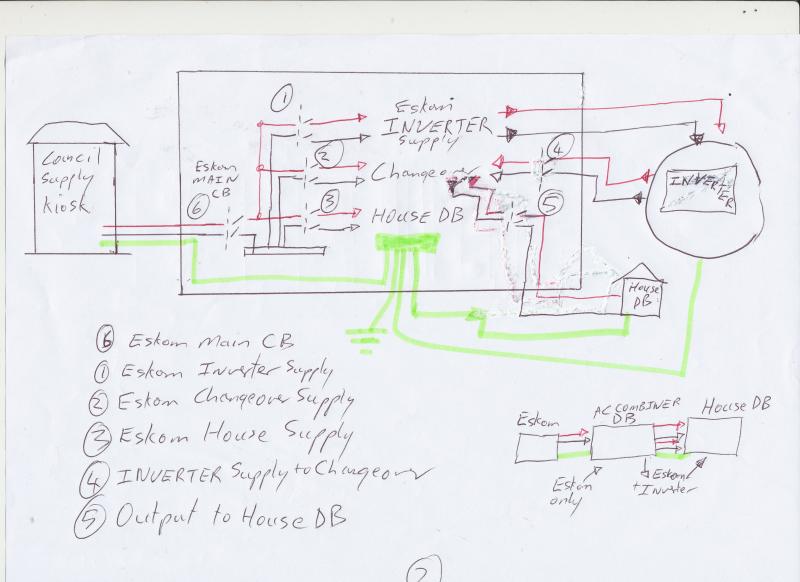 ①
Eskom
INVERTER
Supply
Council
Supply
Kiosk
Eskom
MAIN
CB
⑥
②
④
Changeover
INVERTER
③
⑤
HOUSE DB
House
DB
⑥ Eskom Main CB
① Eskom Inverter Supply
② Eskom Changeover Supply
③ Eskom House Supply
④ INVERTER Supply to Changeover
⑤ Output to House DB
Eskom
AC COMBINER
DB
House DB
Eskom
only
Eskom
+ Inverter
②